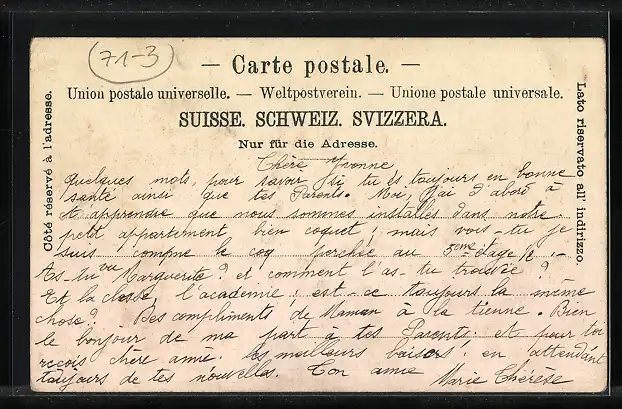 71-3
— Carte postale. —
Union postale universelle. — Weltpostverein. — Unione postale universale.
SUISSE. SCHWEIZ. SVIZZERA.
Nur für die Adresse.
Côté réservé à l'adresse.
Lato riservato all' indirizzo.
Chère Yvonne
Quelques mots pour savoir si tu es toujours en bonne
santé ainsi que tes Parents. Moi, j'ai d'abord à
t'apprendre que nous sommes installés dans notre
petit appartement bien coquet; mais vois-tu je
suis comme le coq perchée au 5ème étage
As-tu vu Marguerite? et comment l'as-tu trouvée?
Et la classe, l'académie; est-ce toujours la même
chose? Des compliments de Maman à la tienne. Bien
le bonjour de ma part à tes Parents et pour toi
reçois chère amie les meilleurs baisers; en attendant
toujours de tes nouvelles. Ton amie
Marie Thérèse